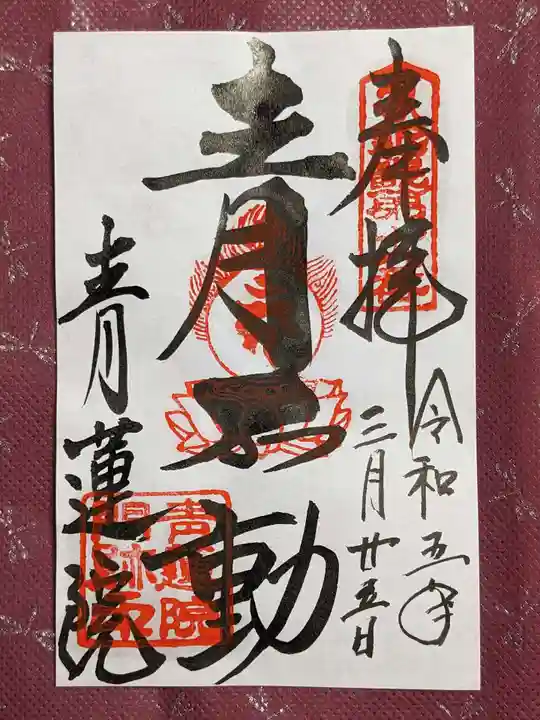 奉拝
令和五年
三月廿五日
青不動
青蓮院
青蓮院
門跡